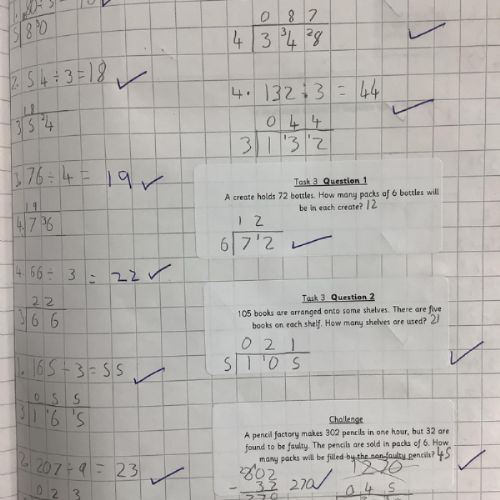 5 8 30
2. 54 ÷ 3 = 18
1 8
3 5 2 4
3. 76 ÷ 4 = 19
1 9
4 7 3 6
4. 66 ÷ 3 = 22
2 2
3 6 6
1. 165 ÷ 3 = 55
0 5 5
3 1 1 6 1 5
2. 207 ÷ 9 = 23
0 2 3
0 8 7
4 3 3 4 2 8
4. 132 ÷ 3 = 44
0 4 4
3 1 1 3 1 2
Task 3 Question 1
A create holds 72 bottles. How many packs of 6 bottles will
be in each create? 12
1 2
6 7 1 2
Task 3 Question 2
105 books are arranged onto some shelves. There are five
books on each shelf. How many shelves are used? 21
0 2 1
5 1 1 0 5
Challenge
A pencil factory makes 302 pencils in one hour, but 32 are
found to be faulty. The pencils are sold in packs of 6. How
many packs will be filled by the non-faulty pencils? 45
- 32 270
270
0 4 5